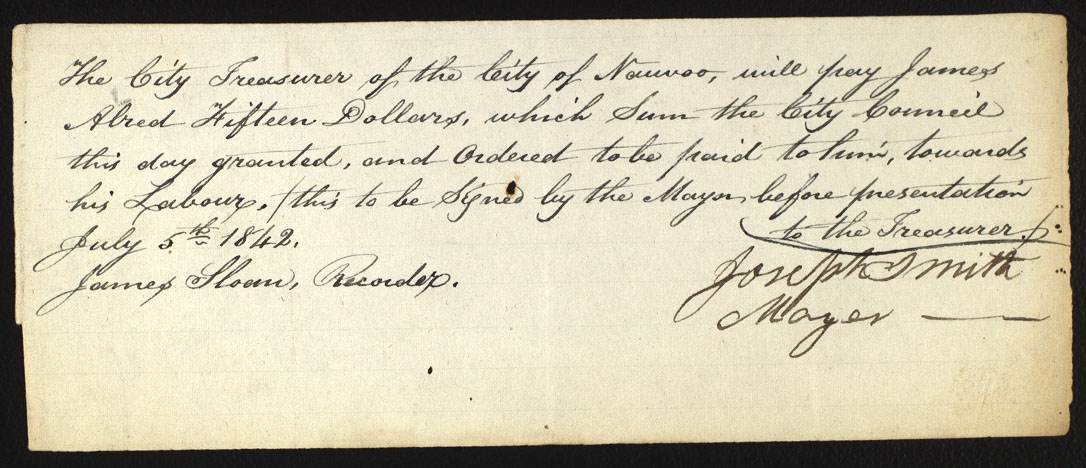 The City Treasurer of the City of Nauvoo, will pay James
Alred Fifteen Dollars, which Sum the City Council
this day granted, and Ordered to be paid to him, towards
his Labour. (this to be Signed by the Mayor before presentation
to the Treasurer.)
July 5th 1842.
James Sloan, Recorder.
Joseph Smith
Mayer